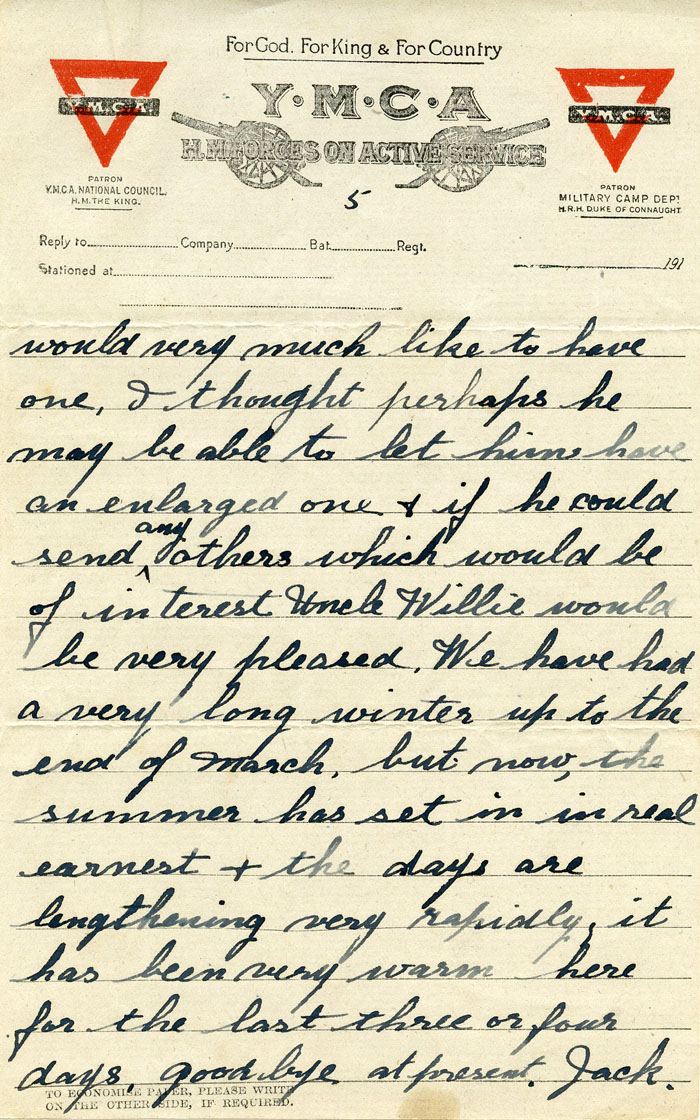 For God. For King & For Country
Y·M·C·A
H.M. FORCES ON ACTIVE SERVICE
Y.M.C.A.
PATRON
Y.M.C.A. NATIONAL COUNCIL.
H.M. THE KING.
Y.M.C.A.
PATRON
MILITARY CAMP DEPT
H.R.H. DUKE OF CONNAUGHT.
5
Reply to Company Bat. Regt.
Stationed at 191
would very much like to have
one, I thought perhaps he
may be able to let him have
an enlarged one & if he could
send any others which would be
of interest Uncle Willie would
be very pleased. We have had
a very long winter up to the
end of March, but now, the
summer has set in in real
earnest & the days are
lengthening very rapidly, it
has been very warm here
for the last three or four
days. Goodbye at present. Jack.
TO ECONOMISE PAPER, PLEASE WRITE
ON THE OTHER SIDE, IF REQUIRED.